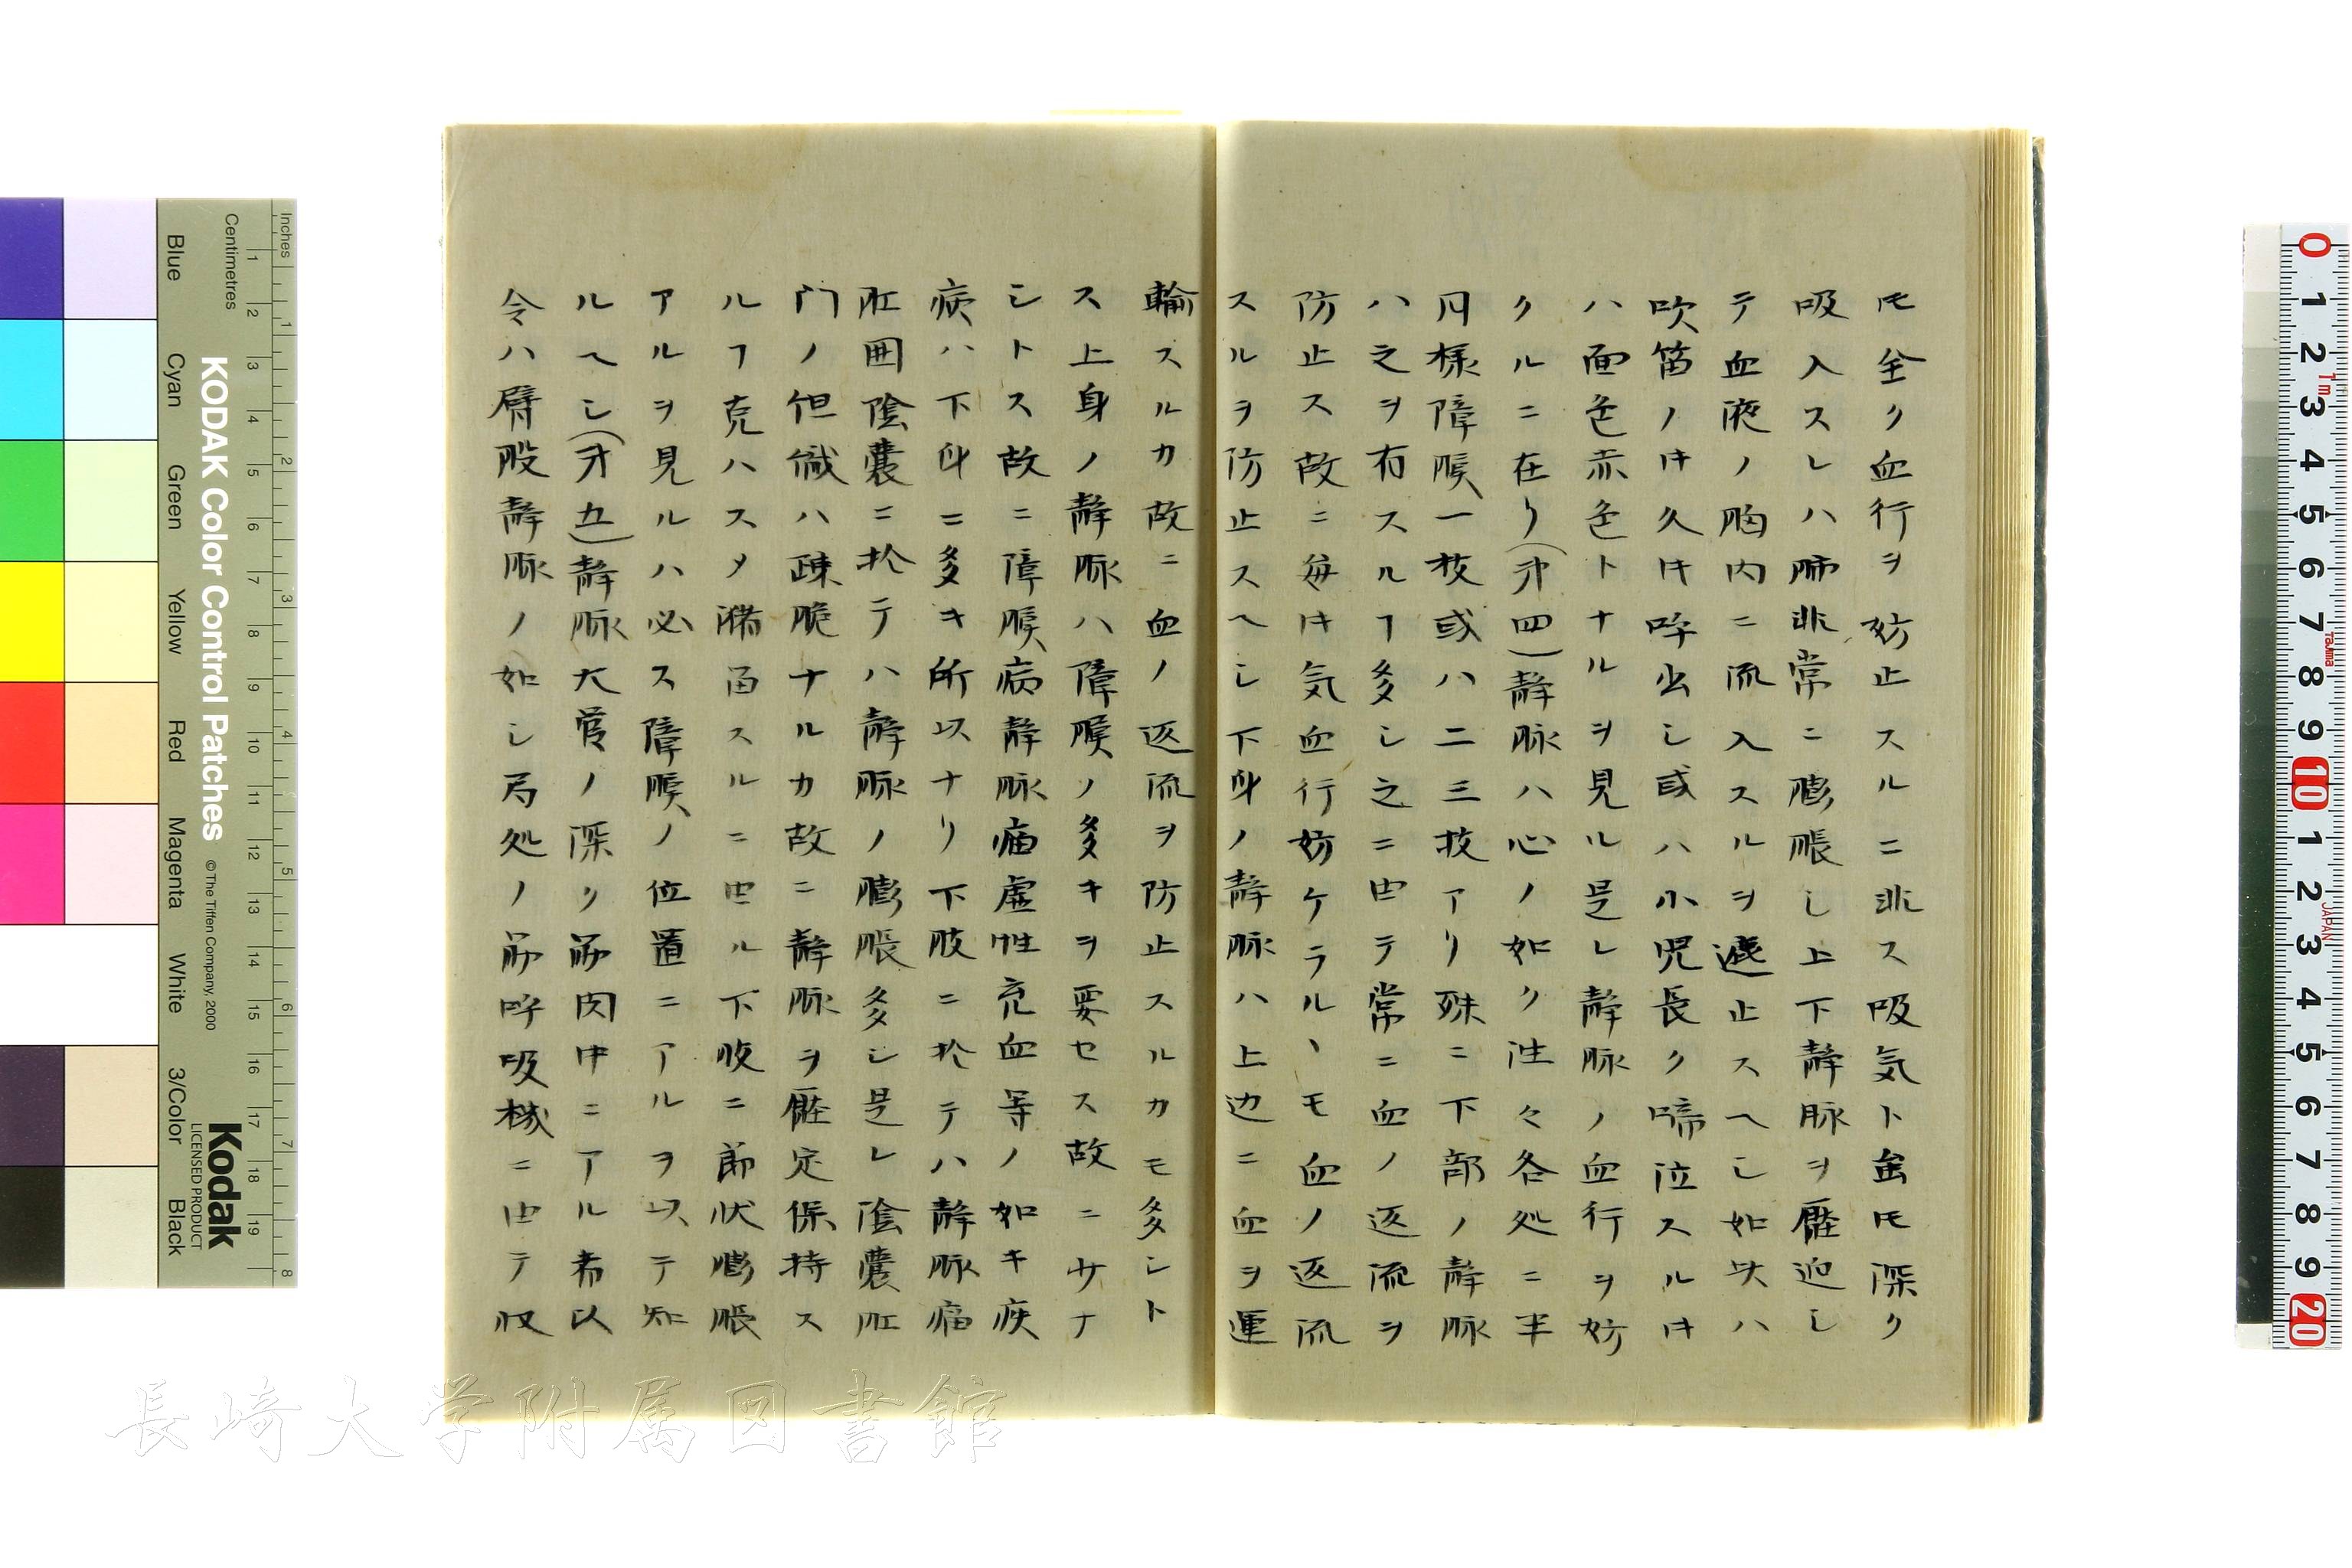 ㆒モ全ク血行ヲ妨止スルニ非ス吸気ト雖𪜈深ク
吸入スレハ肺非常ニ膨脹し上下静脈ヲ壓迫し
テ血液ノ胸内ニ流入スルヲ遮止スヘし如㳒ハ
吹笛ノ𪜈久𪜈呼出し或ハ小児長ク啼泣スル𪜈
ハ面色赤色トナルヲ見ル是レ静脈ノ血行ヲ妨
クルニ在り(第四)静脈ハ心ノ如ク往々各処ニ半
月様障膜一枚或ハ二三枚アリ殊ニ下部ノ静脈
ハ之ヲ有スルヿ多し之ニ由テ常ニ血ノ返流ヲ
防止ス故ニ毎𪜈気血行妨ケラルヽモ血ノ返流
スルヲ防止スヘし下身ノ静脈ハ上辺ニ血ヲ運
輸スルカ故ニ血ノ返流ヲ防止スルカモ多シト
ス上身ノ静脈ハ障膜ノ多キヲ要セス故ニサナ
シトス故ニ障膜病静脈瘤虚性充血等ノ如キ疾
病ハ下身ニ多キ所以ナリ下肢ニ於テハ静脈瘤
肛囲陰嚢ニ於テハ静脈ノ膨脹多シ是レ陰嚢肛
門ノ但織ハ疎脆ナルカ故ニ静脈ヲ壓定保持ス
ルヿ克ハスメ瀦畄スルニ由ル下肢ニ節状膨脹
アルヲ見ルハ必ス障膜ノ位置ニアルヲ以テ知
ルヘシ(第五)静脈大管ノ深ク筋肉中ニアル者以
令ハ臂股静脈ノ如し局処ノ筋呼吸機ニ由テ収
KODAK Color Control Patches
© The Tiffen Company, 2000
Kodak
LICENSED PRODUCT
Blue
Cyan
Green
Yellow
Red
Magenta
White
3/Color
Black
Inches
Centimetres
1 2 3 4 5 6 7 8 9 10 11 12 13 14 15 16 17 18 19
1 2 3 4 5 6 7 8
0 1 2 3 4 5 6 7 8 9 10 1 2 3 4 5 6 7 8 9 20
1m
Tajima
JAPAN
長崎大学附属図書館